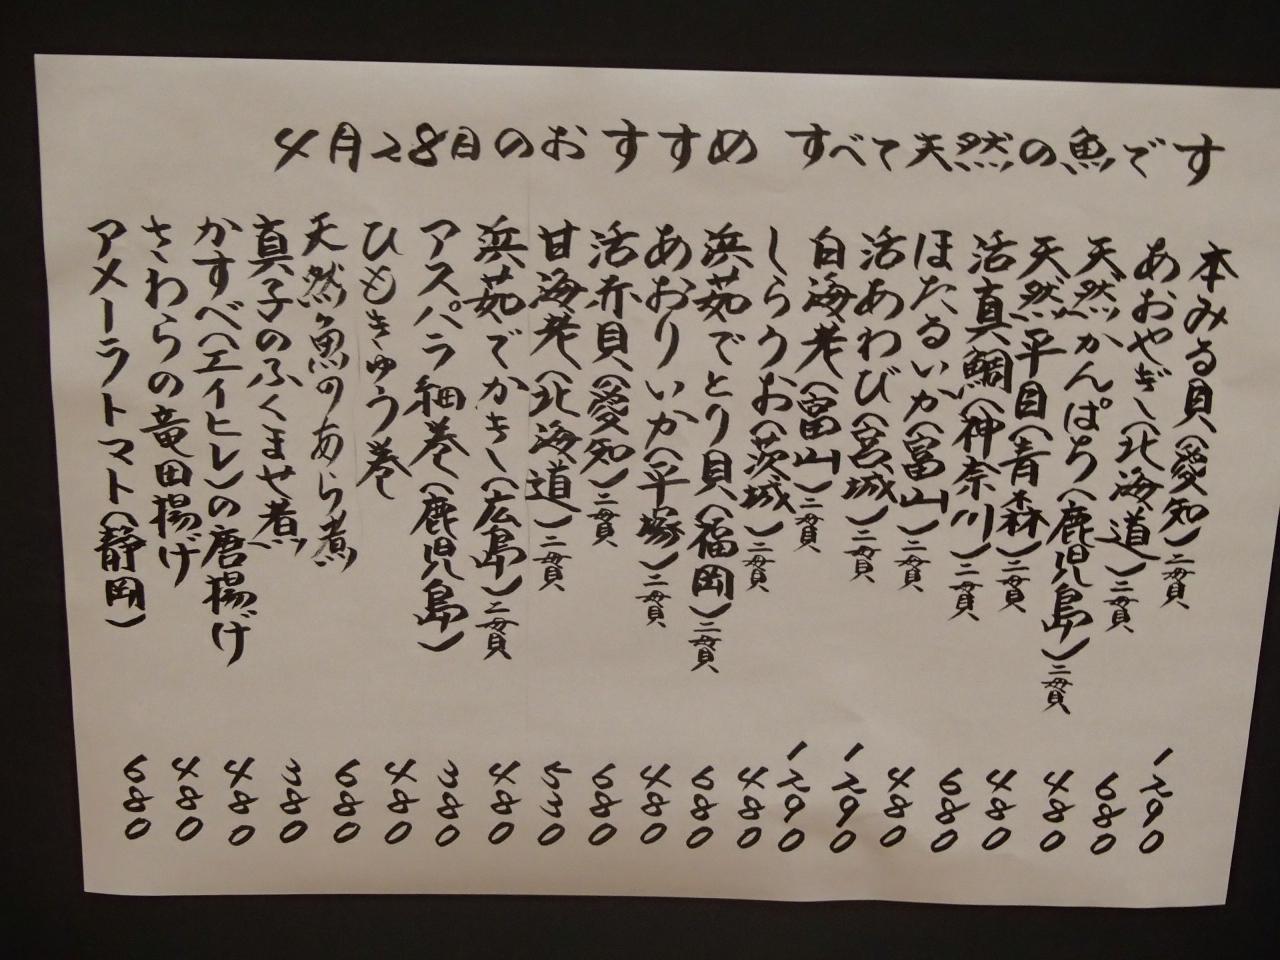 4月28日のおすすめ すべて天然の魚です
本みる貝(愛知)二貫 1290
あおやぎ(北海道)二貫 680
天然かんぱち(鹿児島)二貫 480
天然平目(青森)二貫 480
活真鯛(神奈川)二貫 680
ほたるいか(富山)二貫 480
活あわび(宮城)二貫 1290
白海老(富山)二貫 1290
しらうお(茨城)二貫 480
浜茹でとり貝(福岡)二貫 680
あおりいか(平塚)二貫 480
活赤貝(愛知)二貫 680
甘海老(北海道)二貫 530
浜茹でかき(広島)二貫 480
アスパラ細巻(鹿児島) 380
ひもきゅう巻 480
天然魚のあら煮 680
真子のふくませ煮 380
かすべ(エイヒレ)の唐揚げ 480
さわらの竜田揚げ 480
アメーラトマト(静岡) 680